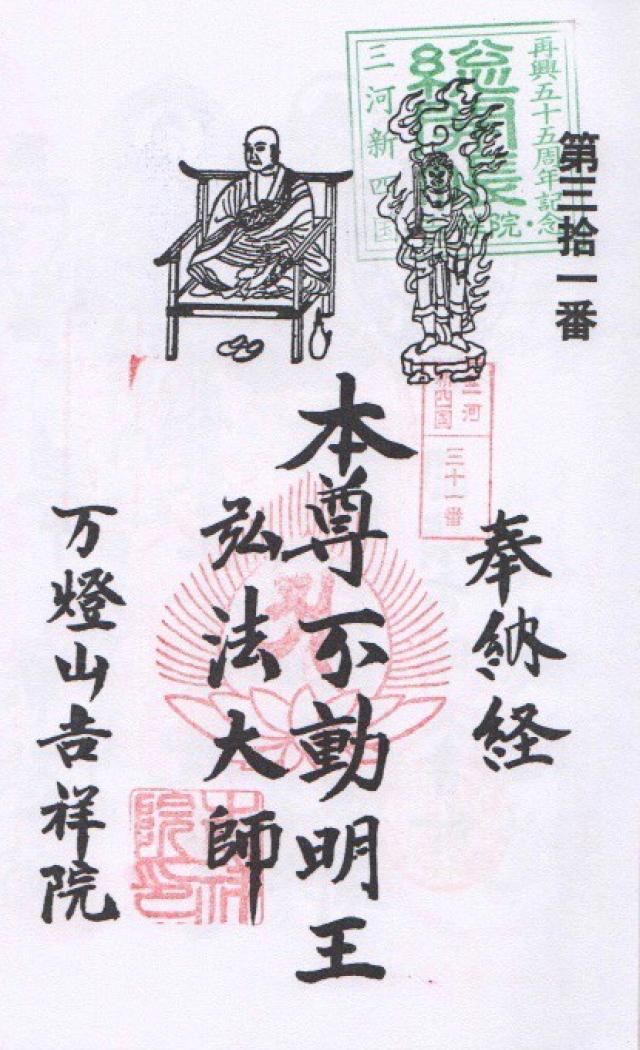 第三拾一番
再興五十五周年記念
総開帳
三河新四国
三河
新四国
三十一番
奉納経
本尊不動明王
弘法大師
万燈山吉祥院